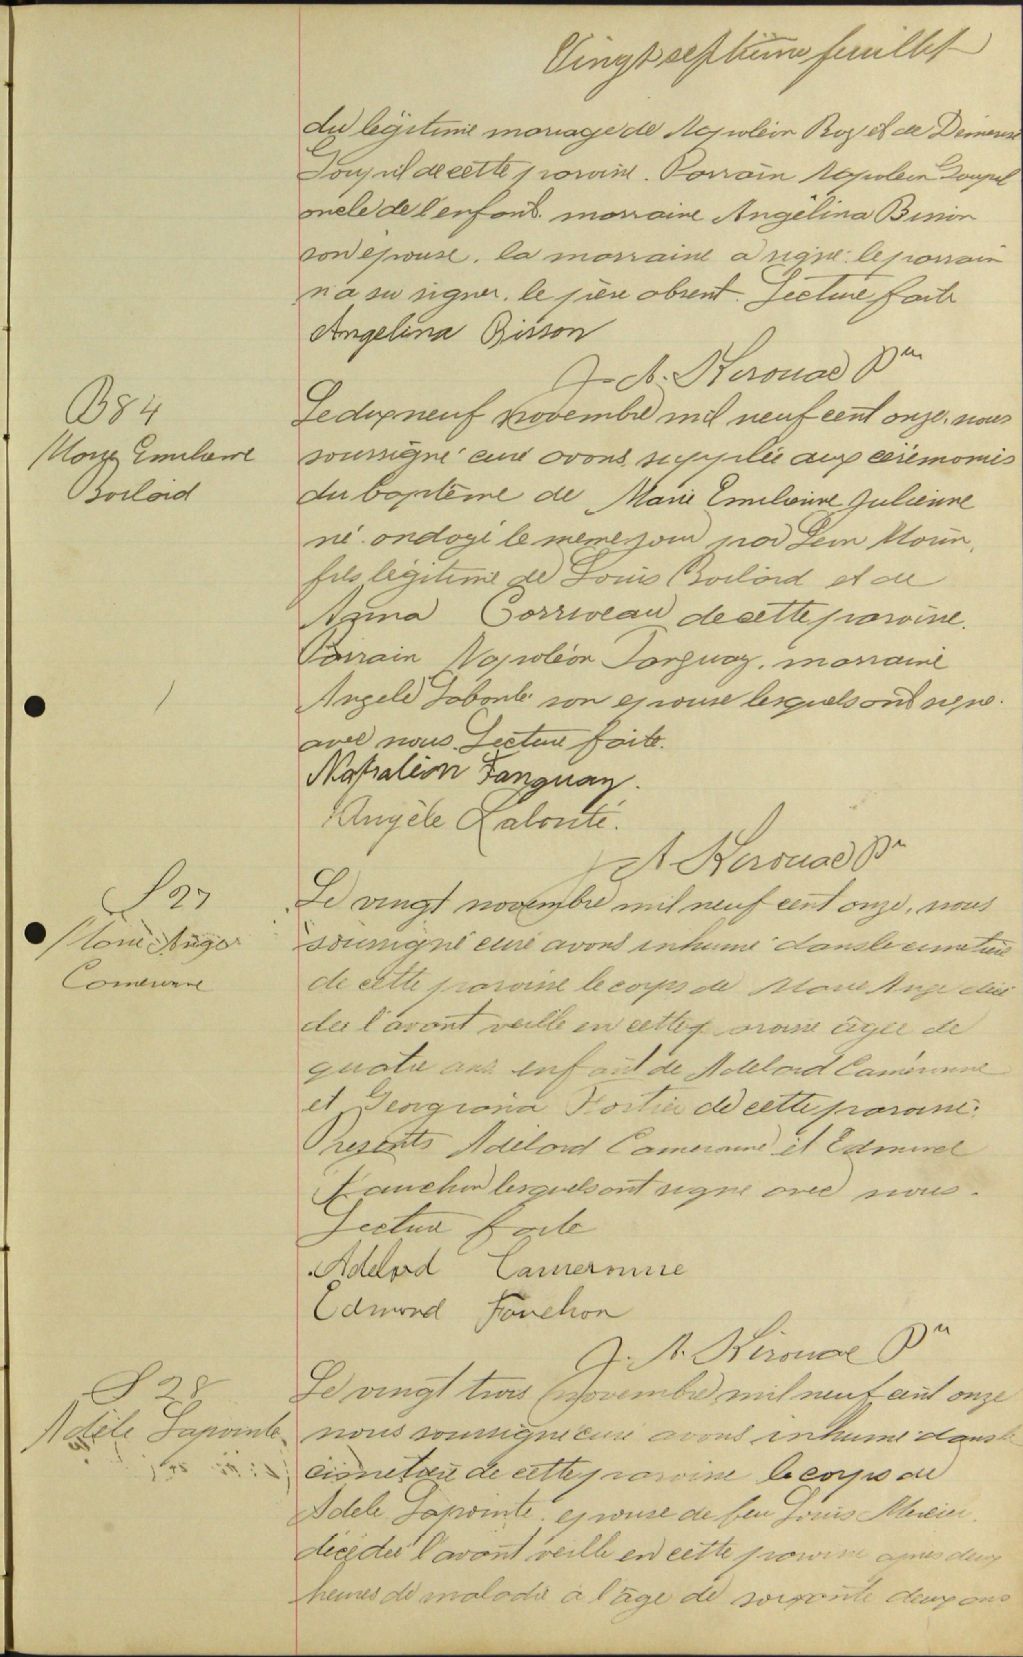 Vingt septième feuillet
du légitime mariage de Napoléon Roy et de Démerise
Goupil de cette paroisse. Parrain Napoleon Goupil
oncle de l'enfant. marraine Angélina Bisson
son épouse. la marraine a signé. le parrain
n'a su signer. le père absent. Lecture faite
Angelina Bisson
J. A. Kirouac Ptre
B 84
Marie Emilienne
Boilard
Le dix neuf novembre mil neuf cent onze, nous
soussigné curé avons suppplée aux cérémonies
du baptême de Marie Emilienne Julienne
né ondoyé le meme jour par Léon Morin,
fils légitime de Louis Boilard et de
Anna Corriveau de cette paroisse.
Parrain Napoléon Tanguay. marraine
Angele Labonté son epouse lesquels ont signé
avec nous. Lecture faite.
Napoléon Tanguay.
Angèle Labonté.
J A Kirouac Ptre
S 27
Marie Ange
Cameronne
Le vingt novembre mil neuf cent onze, nous
soussigné curé avons inhumé dans le cimetière
de cette paroisse le corps de Marie Ange décé
dée l'avant veille en cette paroisse âgée de
quatre ans enfant de Adelard Cameronne
et Georgiana Fortier de cette paroisse.
Presents Adélard Cameronne et Edmond
Fauchon lesquels ont signe avec nous.
Lecture faite
Adelard Cameronne
Edmond Fauchon
J. A. Kirouac Ptre
S 28
Adèle Lapointe
Le vingt trois novembre mil neuf cent onze
nous soussigné curé avons inhumé dans le
cimetière de cette paroisse le corps de
Adele Lapointe epouse de feu Louis Mercier.
décédée l'avant veille en cette paroisse apres deux
heures de maladie à l'âge de soixante deux ans